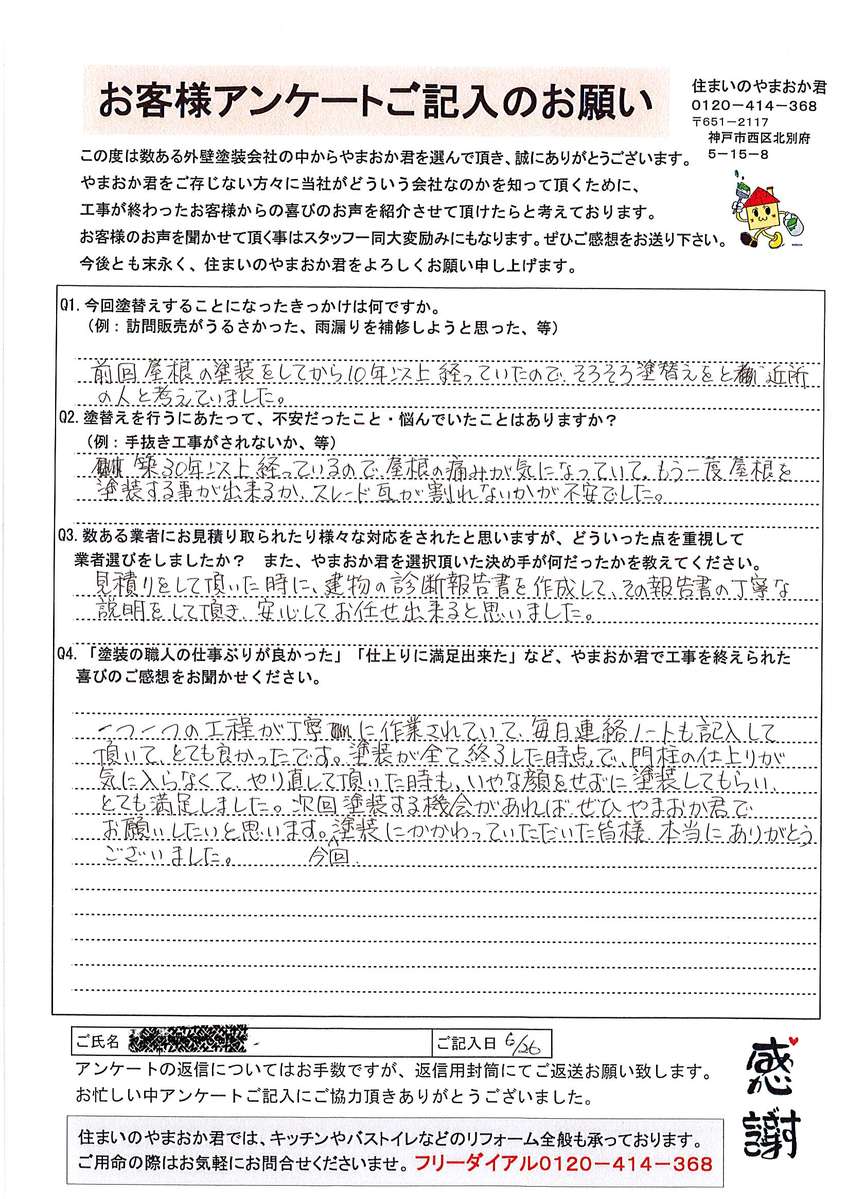 お客様アンケートご記入のお願い
住まいのやまおか君
0120-414-368
〒651-2117
神戸市西区北別府
5-15-8
この度は数ある外壁塗装会社の中からやまおか君を選んで頂き、誠にありがとうございます。
やまおか君をご存じない方々に当社がどういう会社なのかを知って頂くために、
工事が終わったお客様からの喜びのお声を紹介させて頂けたらと考えております。
お客様のお声を聞かせて頂く事はスタッフ一同大変励みにもなります。ぜひご感想をお送り下さい。
今後とも末永く、住まいのやまおか君をよろしくお願い申し上げます。
Q1. 今回塗替えすることになったきっかけは何ですか。
（例：訪問販売がうるさかった、雨漏りを補修しようと思った、等）
前回屋根の塗装をしてから10年以上経っていたので、そろそろ塗替えをと 近所
の人と考えていました。
Q2. 塗替えを行うにあたって、不安だったこと・悩んでいたことはありますか？
（例：手抜き工事がされないか、等）
築30年以上経っているので、屋根の痛みが気になっていて、もう一度屋根を
塗装する事が出来るか、スレード瓦が割れないかが不安でした。
Q3. 数ある業者にお見積り取られたり様々な対応をされたと思いますが、どういった点を重視して
業者選びをしましたか？ また、やまおか君を選択頂いた決め手が何だったかを教えてください。
見積りをして頂いた時に、建物の診断報告書を作成して、その報告書の丁寧な
説明をして頂き、安心してお任せ出来ると思いました。
Q4. 「塗装の職人の仕事ぶりが良かった」「仕上りに満足出来た」など、やまおか君で工事を終えられた
喜びのご感想をお聞かせください。
一つ一つの工程が丁寧に作業されていて、毎日連絡ノートも記入して
頂いて、とても良かったです。塗装が全て終了した時点で、門柱の仕上りが
気に入らなくて、やり直して頂いた時も、いやな顔をせずに塗装してもらい、
とても満足しました。次回塗装する機会があれば、ぜひやまおか君で
お願いしたいと思います。塗装にかかわっていただいた皆様、本当にありがとう
ございました。 今回
ご氏名
ご記入日 6/26
アンケートの返信についてはお手数ですが、返信用封筒にてご返送お願い致します。
お忙しい中アンケートご記入にご協力頂きありがとうございました。
感謝
住まいのやまおか君では、キッチンやバストイレなどのリフォーム全般も承っております。
ご用命の際はお気軽にお問合せくださいませ。フリーダイアル0120-414-368